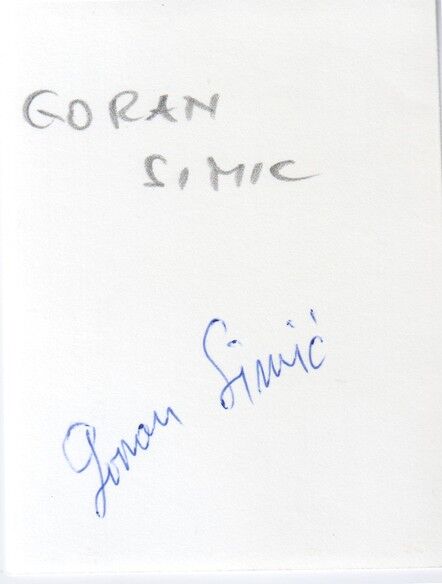 GORAN
SIMIC
Goran Simić